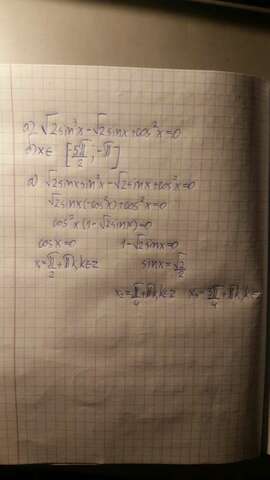 а) √2sin³x-√2sinx+cos²x=0
б) x∈ [5π/2; -π]
а) √2sinxsin²x-√2sinx+cos²x=0
√2sinx(-cos²x)+cos²x=0
cos²x(1-√2sinx)=0
cosx=0 1-√2sinx=0
x=π/2+πk,k∈z sinx=√2/2
x₂=π/4+πk,k∈z x₃=3π/4+πk,k∈z